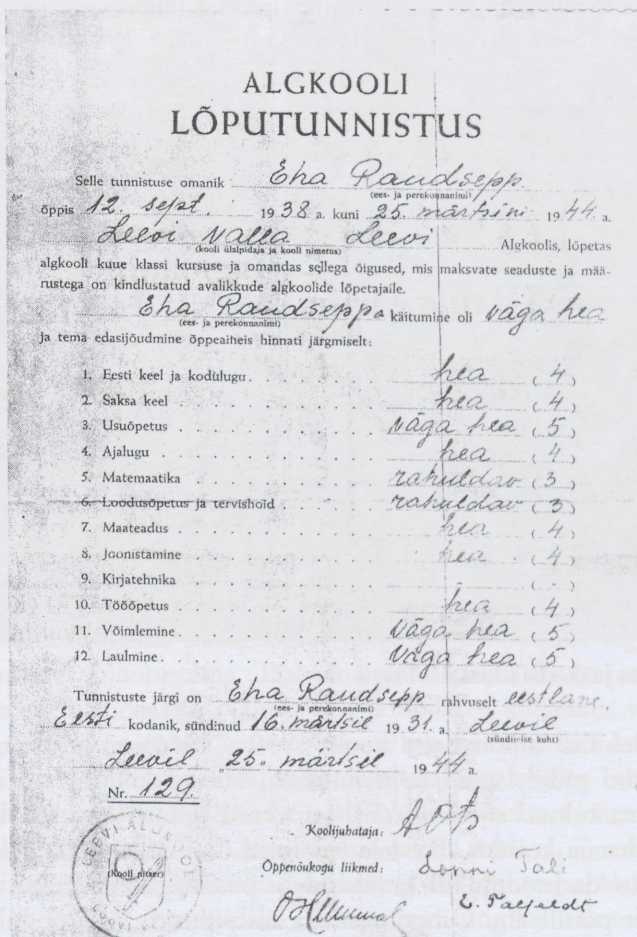 ALGKOOLI
LÕPUTUNNISTUS
Selle tunnistuse omanik Eha Raudsepp
(ees- ja perekonnanimi)
õppis 12. sept. 1938 a. kuni 25. märtsini 1944 a.
Leevi valla Leevi Algkoolis, lõpetas
(kooli ülalpidaja ja kooli nimetus)
algkooli kuue klassi kursuse ja omandas sellega õigused, mis maksvate seaduste ja mää-
rustega on kindlustatud avalikkude algkoolide lõpetajaile.
Eha Raudseppa käitumine oli väga hea
(ees- ja perekonnanimi)
ja tema edasijõudmine õppeaineis hinnati järgmiselt:
1. Eesti keel ja kodulugu . hea (4)
2. Saksa keel hea (4)
3. Usuõpetus väga hea (5)
4. Ajalugu hea (4)
5. Matemaatika rahuldav (3)
6. Loodusõpetus ja tervishoid rahuldav (3)
7. Maateadus hea (4)
8. Joonistamine hea (4)
9. Kirjatehnika - (-)
10. Tööõpetus hea (4)
11. Võimlemine väga hea (5)
12. Laulmine väga hea (5)
Tunnistuste järgi on Eha Raudsepp rahvuselt eestlane,
(ees- ja perekonnanimi)
Eesti kodanik, sündinud 16. märtsil 1931. a. Leevil
(sündimise koht)
Leevil "25" märtsil 1944 a.
Nr. 129.
Koolijuhataja:
LEEVI ALGKOOL
(Kooli pitser)
Õppenõukogu liikmed: Lonni Tali
E. Talfeldt